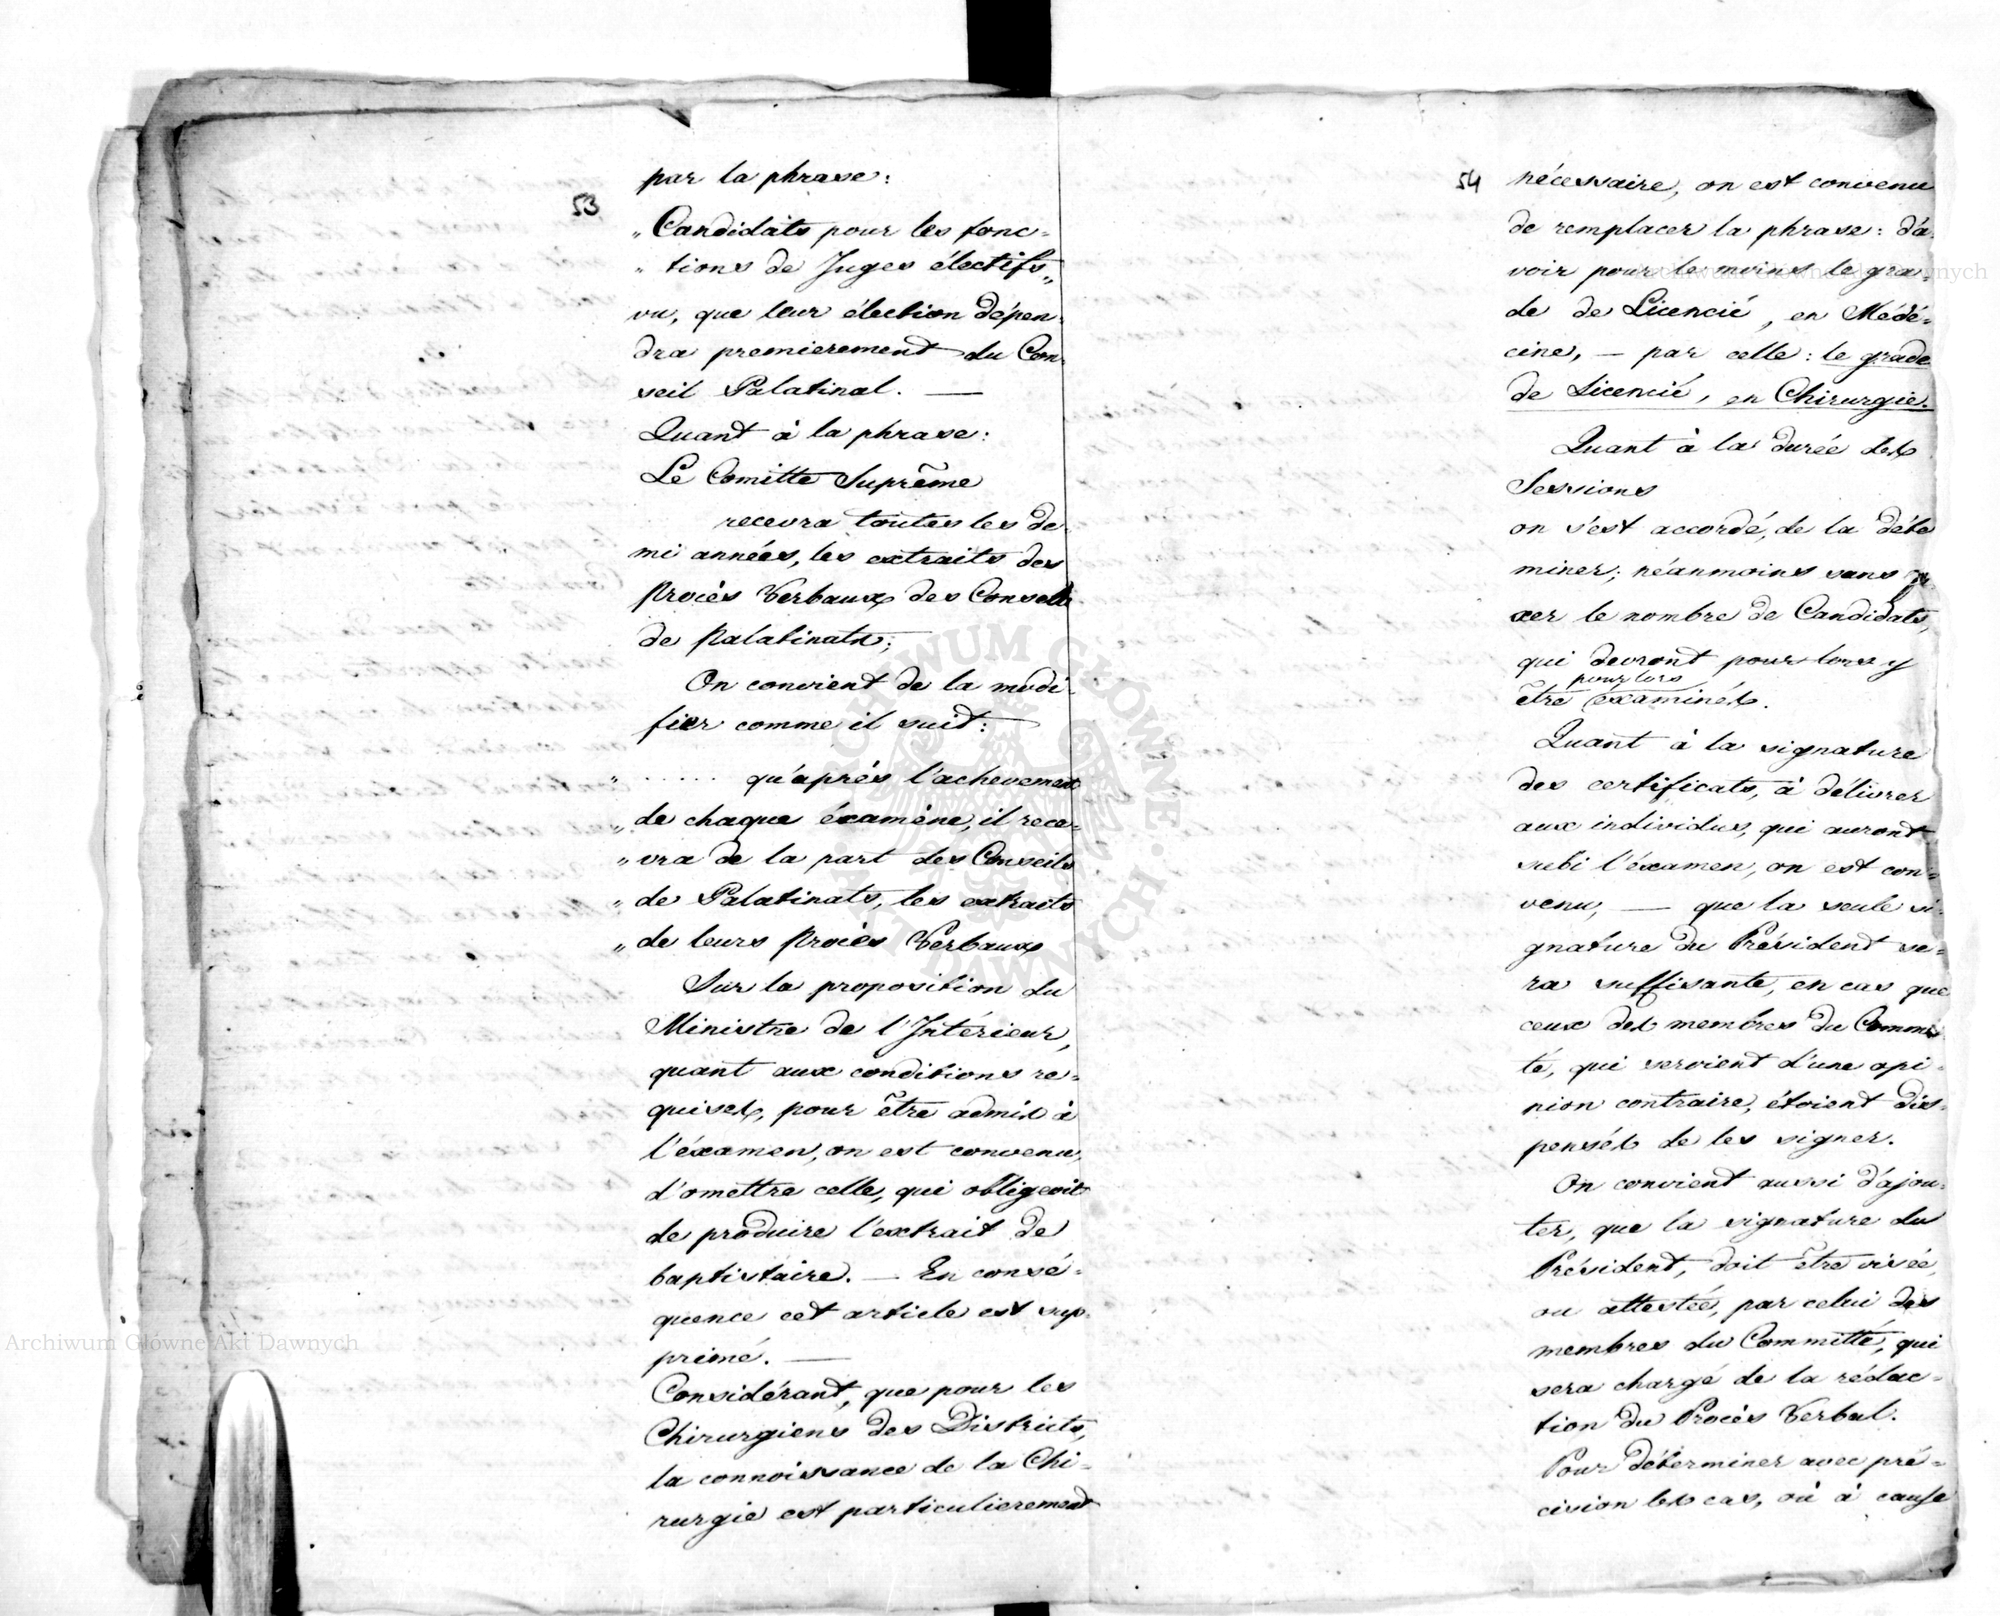 53
par la phrase:
„Candidats pour les fonc=
„tions de Juges électifs„
vu, que leur élection dépen=
dra premierement du Con=
seil Palatinal. —
Quant à la phrase:
Le Comitte Suprême
recevra toutes les de
mi années, les extraits des
Procès Verbaux des Conseils
de Palatinats;
On convient de la modi=
fier comme il suit:
„ ..... qu'après l'achevement
„de chaque éxamène, il rece=
„vra de la part des Conseils
„de Palatinats, les extraits
„de leurs Procès Verbaux
Sur la proposition du
Ministre de l'Intérieur,
quant aux conditions re=
quises, pour être admis à
l'éxamen, on est convenu,
d'omettre celle, qui obligeoit
de produire l'extrait de
baptistaire. — En consé=
quence cet article est sup=
primé. —
Considérant, que pour les
Chirurgiens des Districts,
la connoissance de la Chi=
rurgie est particulierement
54
nécessaire, on est convenu
de remplacer la phrase: d'a=
voir pour le moins le gra=
de de Licencié, en Médé=
cine, — par celle: le grade
de Licencié, en Chirurgie.
Quant à la durée des
Sessions
on s'est accordé, de la déte
miner; néanmoins sans
xer le nombre de Candidats,
qui devront pour lors y
pour lors
être éxaminés.
Quant à la signature
des certificats, à délivrer
aux individus, qui auront
subi l'éxamen, on est con=
venu, — que la seule si=
gnature du Président se=
ra suffisante, en cas que
ceux des membres du Commi
té, qui seroient d'une opi=
nion contraire, étoient dis=
pensés de les signer.
On convient aussi d'ajou=
ter, que la signature du
Président, doit être visée,
ou attestée, par celui des
membres du Committé, qui
sera chargé de la rédac=
tion du Procès Verbal.
Pour déterminer avec pré=
cision les cas, où à cause
Archiwum Główne Akt Dawnych
Archiwum Główne Akt Dawnych
ARCHIWUM GŁÓWNE AKT DAWNYCH